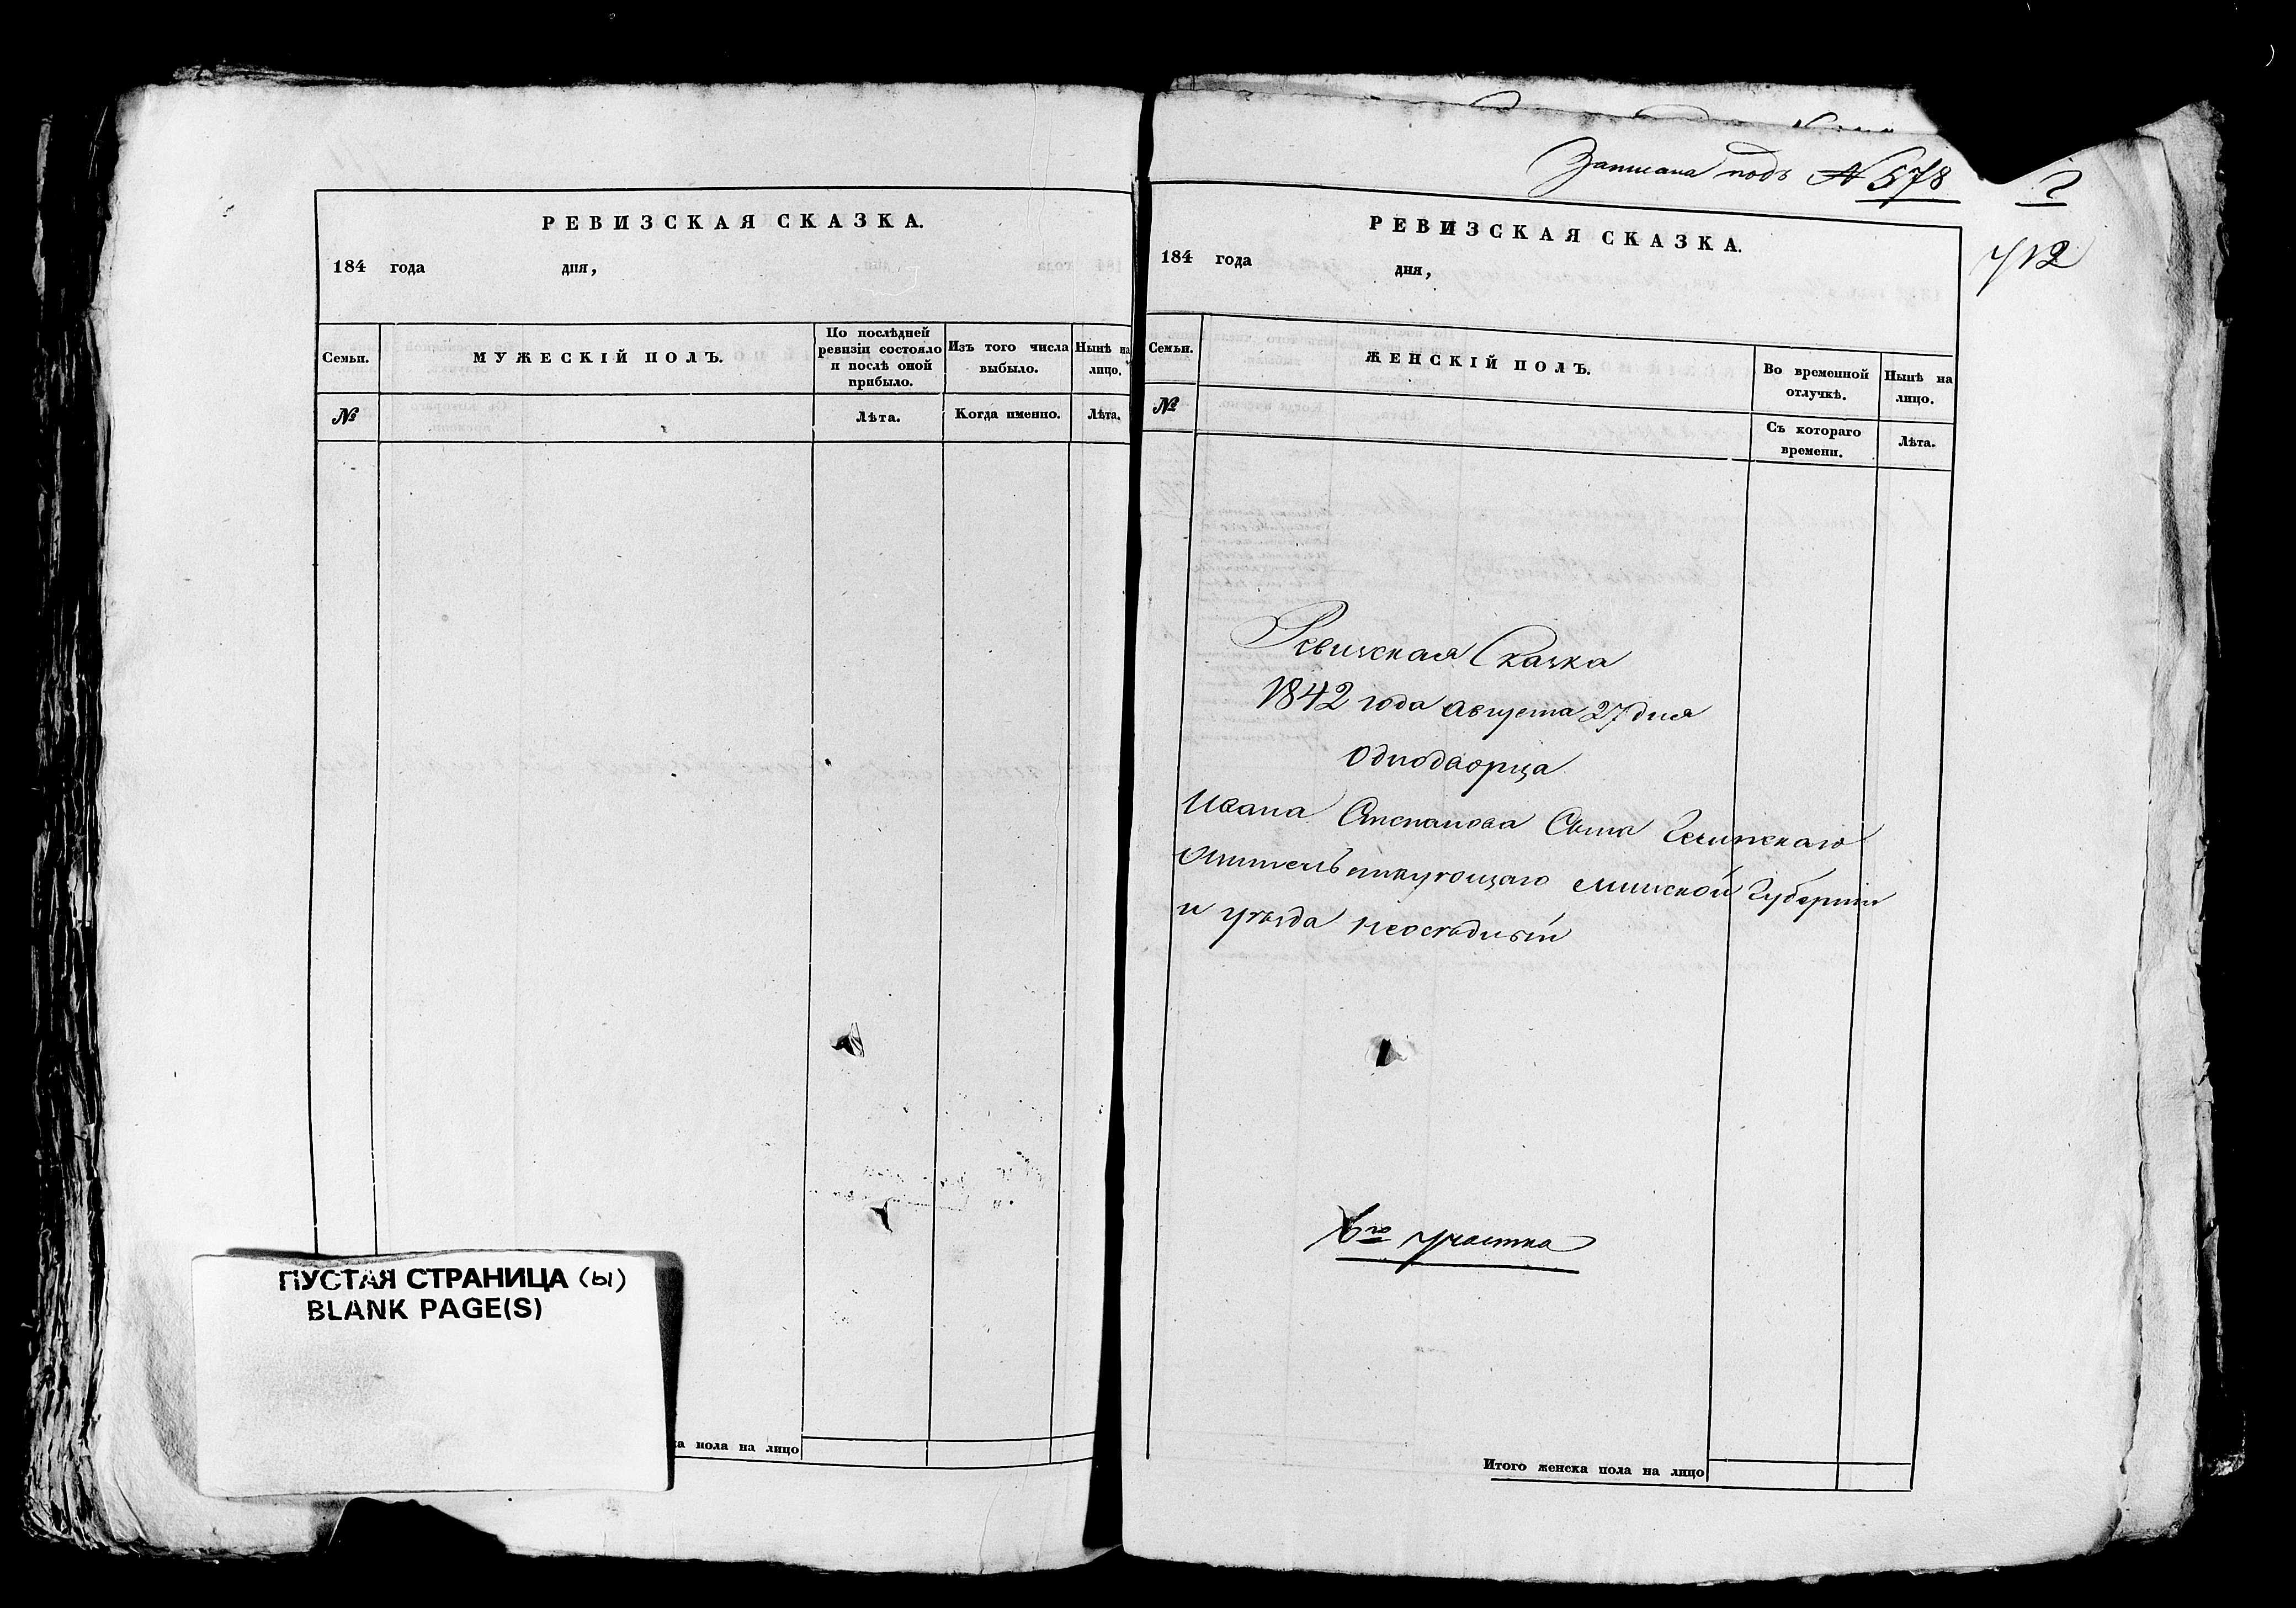 РЕВИЗСКАЯ СКАЗКА.
184 года дня,
Семьи.
МУЖЕСКІЙ ПОЛЪ.
По послѣдней ревизіи состояло и послѣ оной прибыло.
Изъ того числа выбыло.
Нынѣ на лицо.
№
Лѣта.
Когда именно.
Лѣта.
ПУСТАЯ СТРАНИЦА (ы)
BLANK PAGE(S)
пола на лицо
Записана подъ № 578
712
РЕВИЗСКАЯ СКАЗКА.
184 года дня,
Семьи.
ЖЕНСКІЙ ПОЛЪ.
Во временной отлучкѣ.
Нынѣ на лицо.
№
Съ котораго времени.
Лѣта.
Ревизская Сказка
1842 года августа 27 дня
Однодворца
Ивана Степанова Сына
Минской Губерніи
и уѣзда неосѣдлый
6го участка
Итого женска пола на лицо